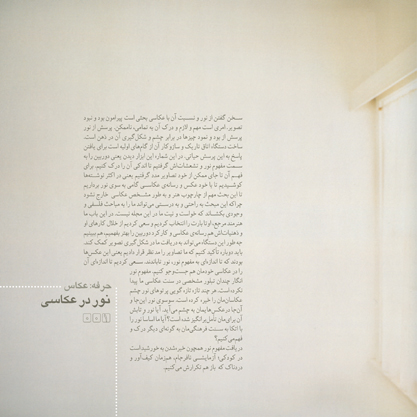 سخن گفتن از نور و نسبت آن با عکاسی بحثی است پیرامون بود و نبود
تصویر. امری است مهم و لازم و درک آن به تمامی، ناممکن. پرسش از نور
پرسش از بود و نمود چیزها در برابر چشم و شکل‌گیری آن در ذهن است.
ساخت دستگاه اتاق تاریک و سازوکار آن از گام‌های اولیه است برای یافتن
پاسخ به این پرسش حیاتی. در این شماره این ابزار دیدن یعنی دوربین را به
سمت مفهوم نور و تشعشعاتش گرفتیم تا اندکی آن را درک کنیم. برای
فهم آن تا جای ممکن از خود تصاویر مدد گرفتیم یعنی در اکثر نوشته‌ها
کوشیدیم تا با خود عکس و رسانه‌ی عکاسی گامی به سوی نور برداریم
تا این بحث مهم از چارچوب هنر و به طور مشخص عکاسی خارج نشود
چرا که این مبحث به راحتی و به درستی می‌تواند ما را به مباحث فلسفی و
وجودی بکشاند که خواست و نیت ما در این مجله نیست. در این باب ما
هنرمند مرجع، اوتا بارت را انتخاب کردیم و سعی کردیم از خلال کارهای او
و ذهنیات‌اش هم رسانه‌ی عکاسی و کارکرد دوربین را بهتر بفهمیم، هم ببینیم
چه طور این دستگاه می‌تواند به دریافت ما در شکل‌گیری تصویر کمک کند.
باید دوباره تأکید کنیم که ما تصاویر را مد نظر قرار دادیم یعنی این عکس‌ها
بودند که تا اندازه‌ای به مفهوم نور، نور تاباندند. سعی کردیم تا اندازه‌ای آن
را در عکاسی خودمان هم جست‌وجو کنیم. مفهوم نور
انگار چندان تبلور مشخصی در سنت عکاسی ما پیدا
نکرده است. هر چند تازه تازه گویی پرتوهای نور چشم
عکاسان‌مان را خیره کرده است. سوسوی نور این‌جا و
آن‌جا در عکس‌هایمان به چشم می‌آید. آیا نور و تابش
آن برای‌مان تأمل‌برانگیز شده است؟ آیا ما اساسا نور را
با اتکا به سنت فرهنگی‌مان به گونه‌ای دیگر درک و
فهم می‌کنیم؟
دریافت مفهوم نور همچون خیره شدن به خورشید است
در کودکی؛ آزمایشی نافرجام، هم‌زمان کیف‌آور و
دردناک که باز هم تکرارش می‌کنیم.
حرفه: عکاس
نور در عکاسی